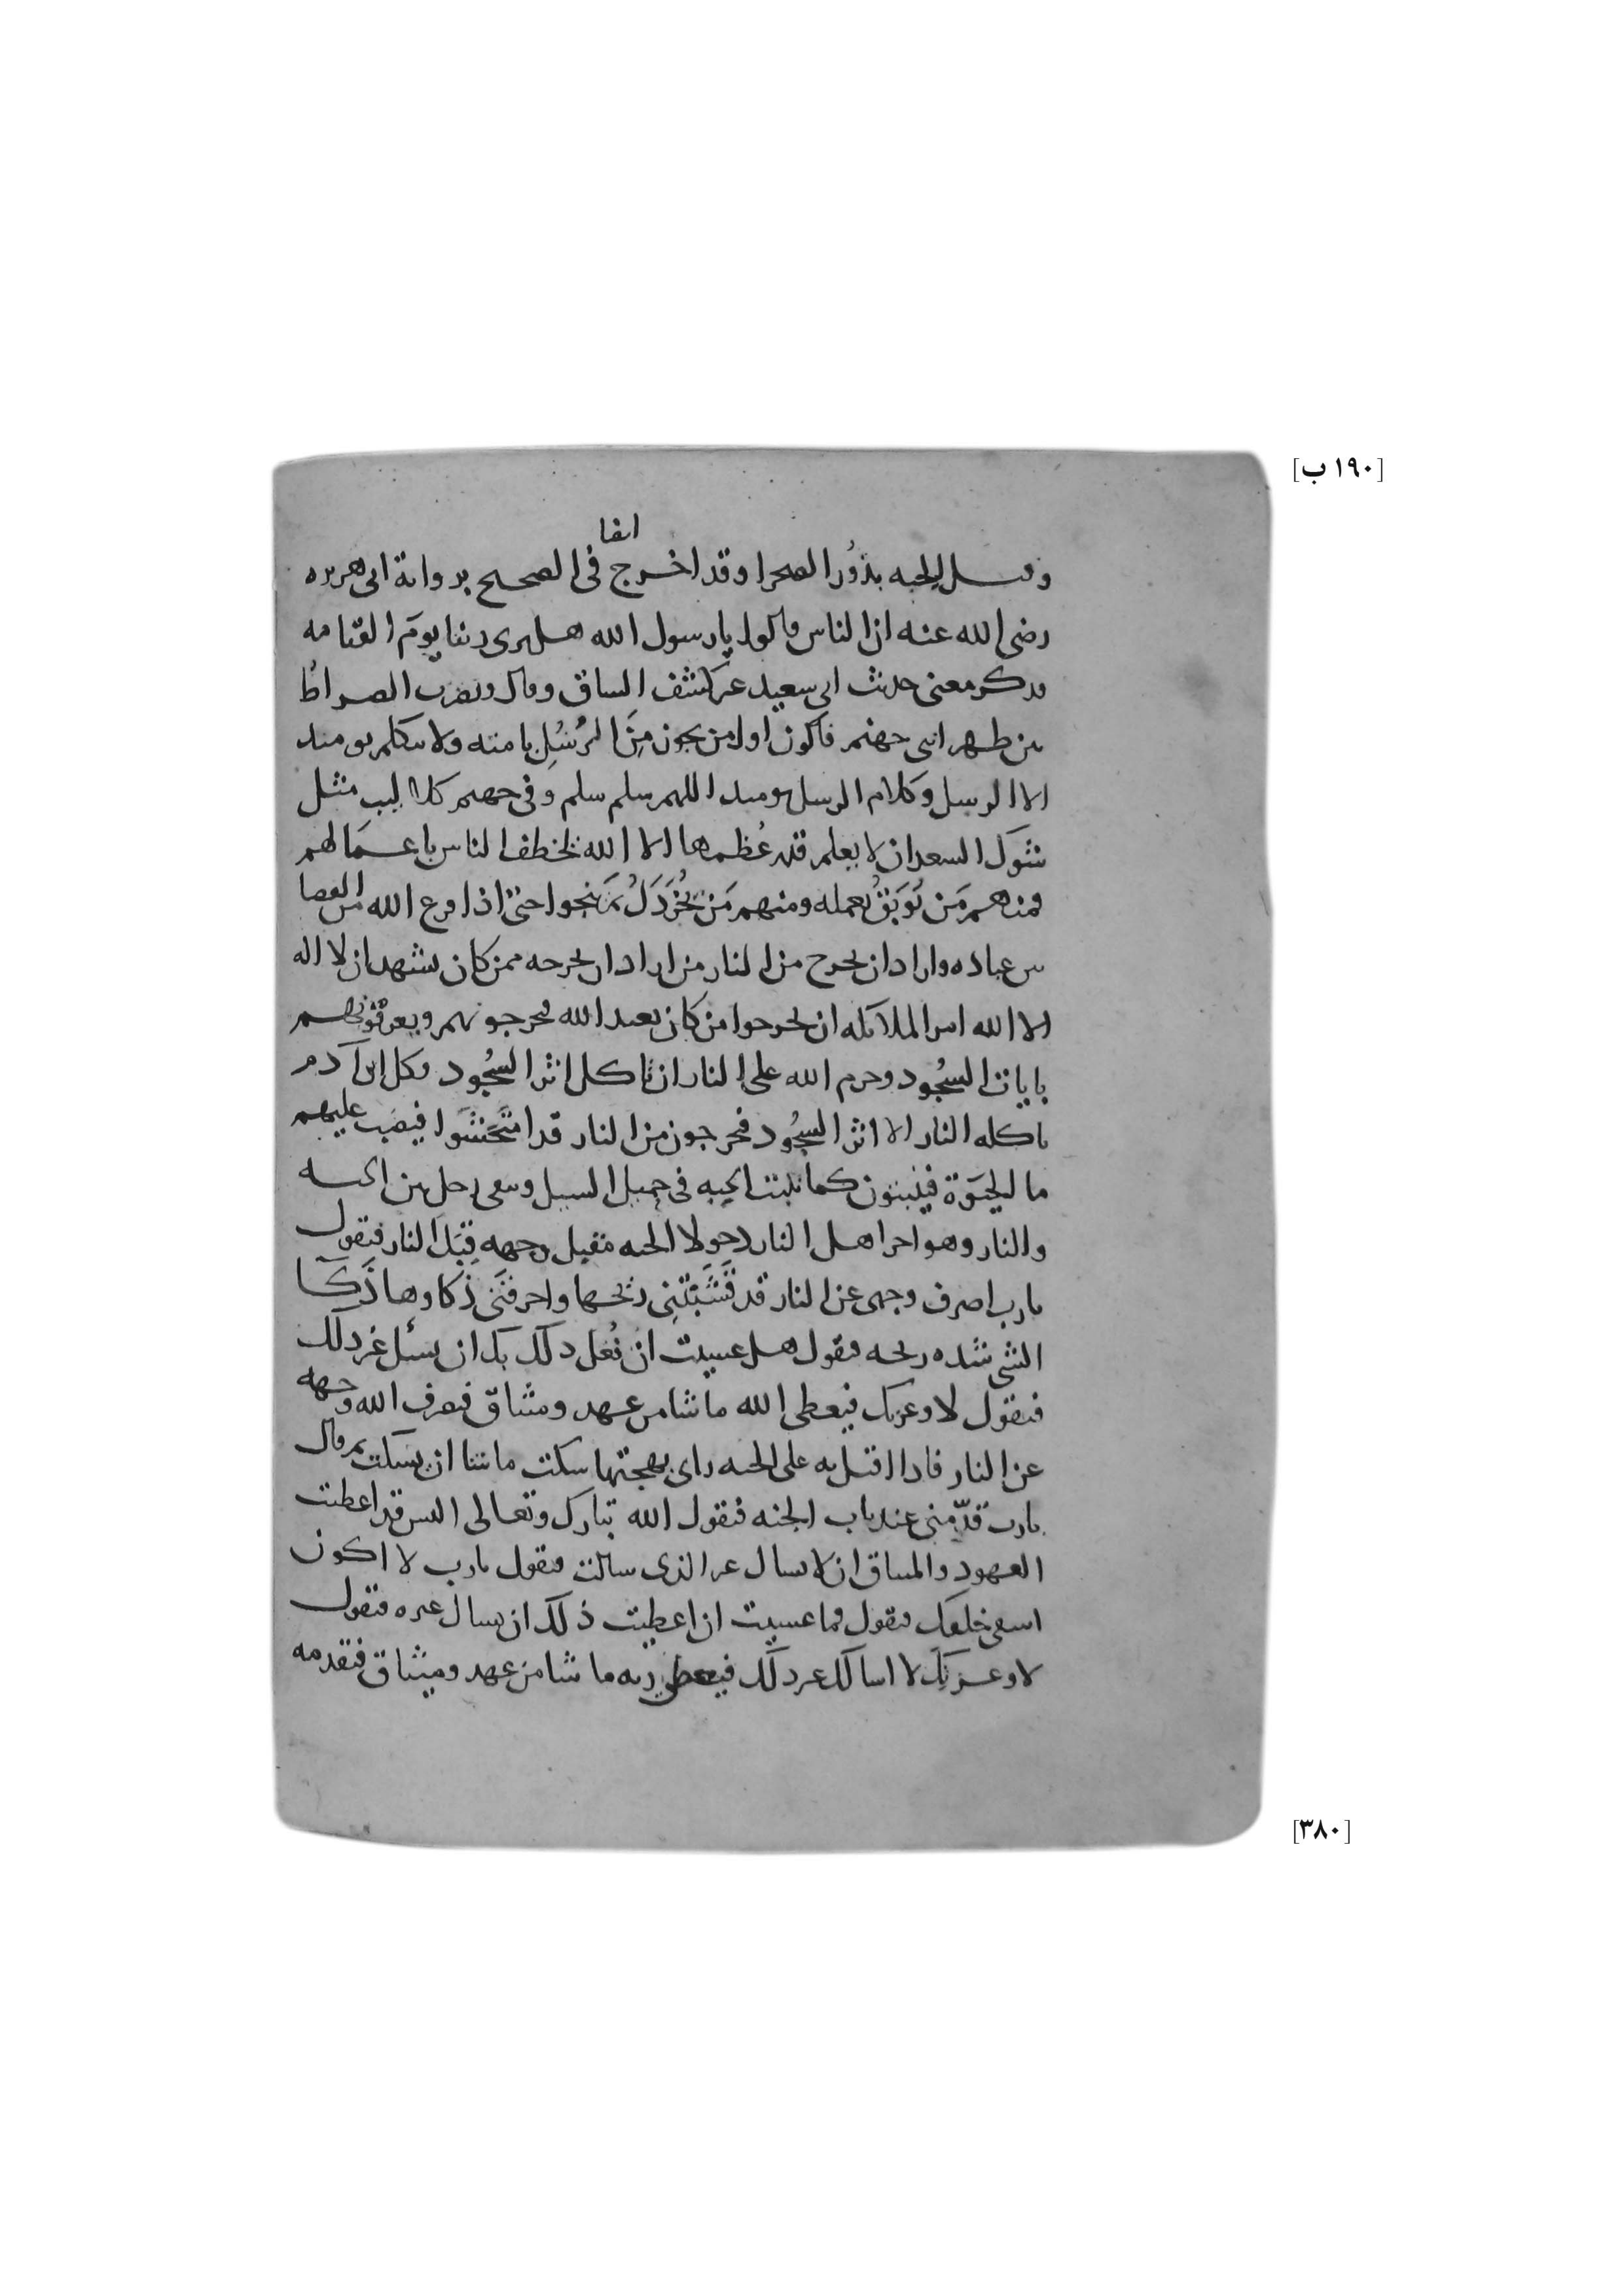 [١٩٠ ب]
ايضا
وقيل الحبه بذور الصحرا وقد اخرج في الصحيح برواية ابي هريره
رضي الله عنه ان الناس قالوا يا رسول الله هل نرى ربنا يوم القيامه
فذكر معنى حديث ابي سعيد عن كشف الساق وقال ويضرب الصراط
بين ظهراني جهنم فاكون اول من يجوز من الرُسُل بامته ولا يتكلم يوميذ
الا الرسل وكلام الرسل يوميذ اللهم سلم سلم وفي جهنم كلاليب مثل
شوك السعدان لا يعلم قدر عُظمها الا الله تخطف الناس باعمالهم
فمنهم مَن يُوبَقُ بعمله ومنهم مَن يُخَردَلُ ثم ينجوا حتى اذا فرغ الله من القضا
بين عباده واراد ان يخرج من النار من اراد ان يخرجه ممن كان يشهد ان لا اله
الا الله امر الملائكه ان يخرجوا من كان يعبد الله فيخرجونهم ويعرفونهم
باثار السُجُود وحرم الله على النار ان تاكل اثر السُجُود فكل ابن آدم
تاكله النار الا اثر السجُود فيخرجون من النار قد امتَحَشَوا فيصب عليهم
ما الحيَوة فينبتون كما تنبت الحبه في حميل السيل ويبقى رجل بين الجنه
والنار وهو اخر اهل النار دخولا الجنه مقبل وجهه قِبَلَ النار فيقول
يا رب اصرف وجهي عن النار قد قَشَبَتنِي ريحها واحرقَني ذكاوها ذَكَا
الشي شده ريحه فيقول هل عسيت ان فُعل ذلك بك ان تسئل غير ذلك
فيقول لا وعزتك فيعطي الله ما شا من عهد وميثاق فيصرف الله وجهه
عن النار فاذا اقبل به على الجنه راى بهجتها سكت ما شا ان يسكت ثم قال
يا رب قدّمني عند باب الجنه فيقول الله تبارك وتعالى اليس قد اعطيت
العهود والميثاق ان لا تسال غير الذي سالت فيقول يا رب لا اكون
اشقى خلقك فيقول فما عسيت ان اعطيت ذلك ان تسال غيره فيقول
لا وعزتك لا اسالك غير ذلك فيعطي ربه ما شا من عهد وميثاق فيقدمه
[٣٨٠]